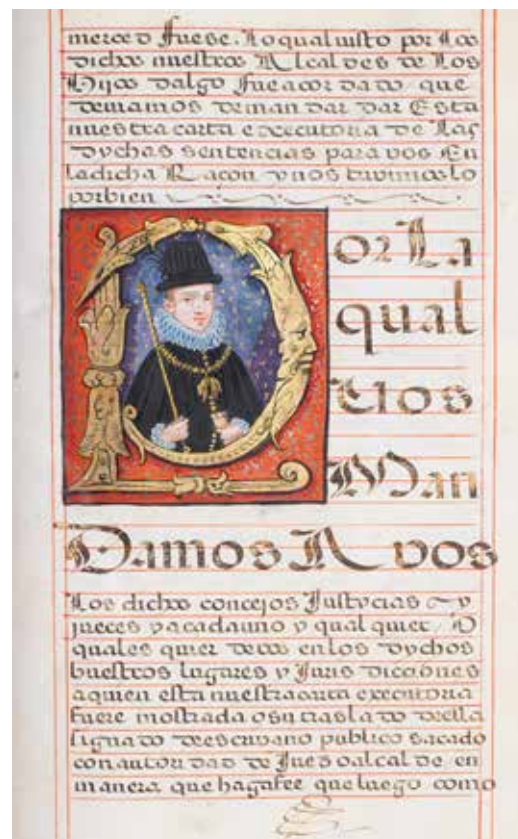 merced fuese. Lo qual visto por los
dichos nuestros Alcaldes de los
Hijos dalgo fue acordado que
deviamos demandar dar Esta
nuestra carta e executoria de las
dychas sentencias para vos En
la dicha Raçon y nos tuvimoslo
por bien
Por La
qual
Nos
Man
Damos A vos
Los dichos concejos Justycias y
jueces y a cada uno y qual quier O
quales quier de vos en los dychos
buestros lugares y Juris dicciones
a quien esta nuestra carta executoria
fuere mostrada o su traslado della
signado de escribano publico sacado
con autoridad de Juez o alcalde en
manera que haga fee que luego como